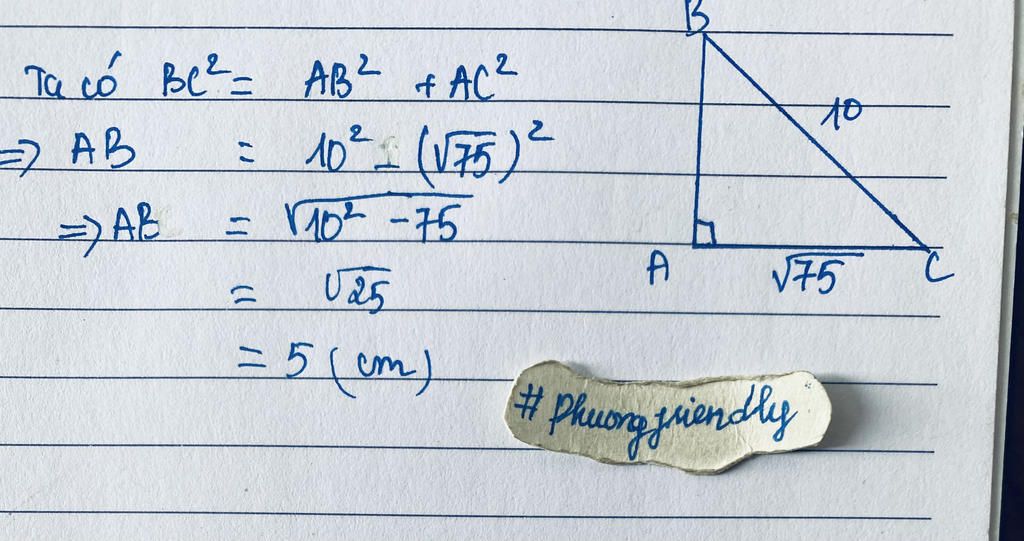 Ta có BC² = AB² + AC²
=> AB = 10² - (√75)²
=> AB = √10² - 75
= √25
= 5 (cm)
B
10
A
√75
C
#phuongfriendly